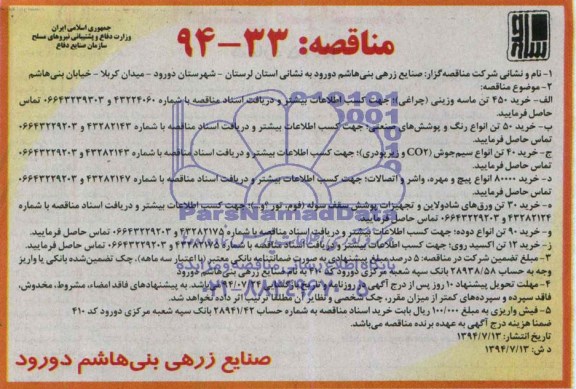 جمهوری اسلامی ایران
وزارت دفاع و پشتیبانی نیروهای مسلح
سازمان صنایع دفاع
مناقصه: ۳۳-۹۴
۱- نام و نشانی شرکت مناقصه‌گزار: صنایع زرهی بنی‌هاشم دورود به نشانی استان لرستان - شهرستان دورود - میدان کربلا - خیابان بنی‌هاشم
۲- موضوع مناقصه:
الف- خرید ۴۵۰ تن ماسه وزینی (چراغی)؛ جهت کسب اطلاعات بیشتر و دریافت اسناد مناقصه با شماره ۴۳۲۲۴۰۶۰ و ۰۶۶۴۳۲۳۹۳۰۳ تماس
حاصل فرمایید.
ب- خرید ۵۰ تن انواع رنگ و پوشش‌های صنعتی؛ جهت کسب اطلاعات بیشتر و دریافت اسناد مناقصه با شماره ۴۳۲۸۲۱۴۳ و ۰۶۶۴۳۲۲۹۲۰۳
تماس حاصل فرمایید.
ج- خرید ۴۰ تن انواع سیم‌جوش (CO۲ و زیرپودری)؛ جهت کسب اطلاعات بیشتر و دریافت اسناد مناقصه با شماره ۴۳۲۸۲۱۴۳ و ۰۶۶۴۳۲۲۹۲۰۳
تماس حاصل فرمایید.
د- خرید ۸۰۰۰۰ انواع پیچ و مهره، واشر و اتصالات؛ جهت کسب اطلاعات بیشتر و دریافت اسناد مناقصه با شماره ۴۳۲۸۲۱۴۷ و ۰۶۶۴۳۲۲۹۲۰۳
تماس حاصل فرمایید.
ه- خرید ۳۰ تن ورق‌های شادولاین و تجهیزات پوشش سقف سوله (فوم، تور و...)؛ جهت کسب اطلاعات بیشتر و دریافت اسناد مناقصه با شماره
۴۳۲۸۲۱۲۴ و ۰۶۶۴۳۲۲۹۲۰۳ تماس حاصل فرمایید.
و- خرید ۹۰ تن انواع دوده؛ جهت کسب اطلاعات بیشتر و دریافت اسناد مناقصه با شماره ۴۳۲۸۲۱۷۵ و ۰۶۶۴۳۲۲۹۲۰۳ تماس حاصل فرمایید.
ز- خرید ۱۲ تن اکسید روی؛ جهت کسب اطلاعات بیشتر و دریافت اسناد مناقصه با شماره ۴۳۲۸۲۱۷۵ و ۰۶۶۴۳۲۲۹۲۰۳ تماس حاصل فرمایید.
۳- مبلغ تضمین شرکت در مناقصه: ۵ درصد مبلغ پیشنهادی به صورت ضمانتنامه بانکی معتبر (با اعتبار سه ماهه)، چک تضمین‌شده بانکی یا واریز
وجه به حساب ۲۸۹۳۸/۵۸ بانک سپه شعبه مرکزی دورود کد ۴۱۰ به نام صنایع زرهی بنی‌هاشم دورود
۴- مهلت تحویل پیشنهاد ۱۰ روز پس از درج آگهی در روزنامه
می‌باشد. به پیشنهادهای فاقد امضاء، مشروط، مخدوش،
فاقد سپرده و سپرده‌های کمتر از میزان مقرر، چک شخصی و نظایر آن مطلقا ترتیب اثر داده نخواهد شد.
۵- فیش واریزی به مبلغ ۱۰۰/۰۰۰ ریال بابت خرید اسناد مناقصه به شماره حساب ۲۸۹۴۱/۴۲ بانک سپه شعبه مرکزی دورود کد ۴۱۰
ضمنا هزینه درج آگهی به عهده برنده مناقصه می‌باشد.
تاریخ انتشار: ۱۳۹۴/۷/۱۳
د ش: ۱۳۹۴/۷/۱۳
صنایع زرهی بنی‌هاشم دورود
ParsNamadData
پایگاه اطلاع رسانی مناقصه و مزایده